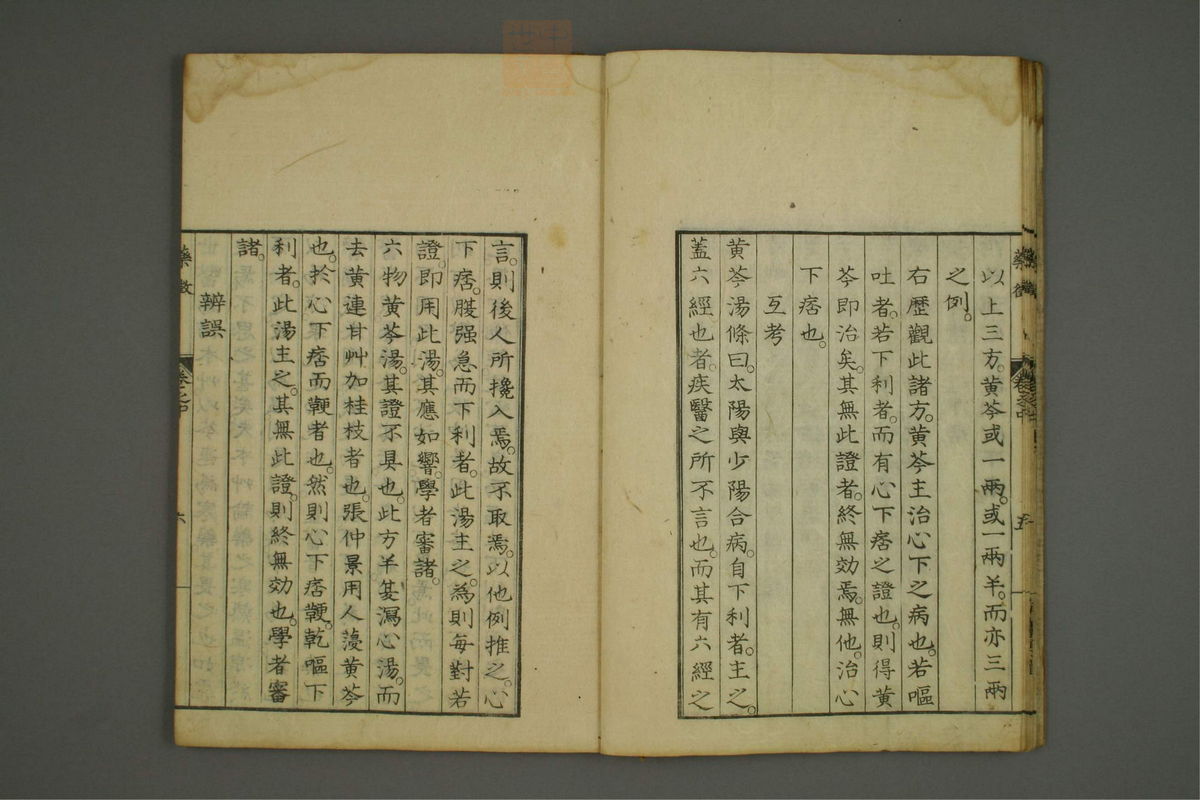 以上三方。黃芩或一兩。或一兩半。而亦三兩
之例。
右歷觀此諸方。黃芩主治心下之病也。若嘔
吐者。若下利者。而有心下痞之證也。則得黃
芩即治矣。其無此證者。終無効焉。無他。治心
下痞也。
互考
黃芩湯條曰。太陽與少陽合病。自下利者。主之。
蓋六經也者。疾醫之所不言也。而其有六經之
言。則後人所攙入焉。故不取焉。以他例推之。心
下痞。腹强急而下利者。此湯主之。為則每對若
證。即用此湯。其應如響。學者審諸。
六物黃芩湯。其證不具也。此方半夏瀉心湯。而
去黃連甘艸加桂枝者也。張仲景用人葠黃芩
也。於心下痞而鞕者也。然則心下痞鞕。乾嘔下
利者。此湯主之。其無此證。則終無効也。學者審
諸。
辨誤
藥徵
卷之中
六
藥徵
卷之中
五